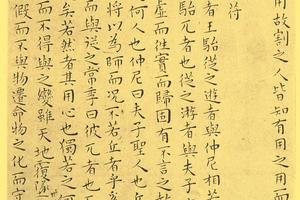 用故割之人皆知有用之用而
符
者王駘從之遊者與仲尼相若
駘兀者也從之游者與夫子
虛而往實而歸固有不言之
何人也仲尼曰夫子聖人也丘
將以為師而況不若丘者乎
而與從之常季曰彼兀者也
矣若然者其用心也獨若之
而不得與之變雖天地覆墜
假而不與物遷命物之化而守